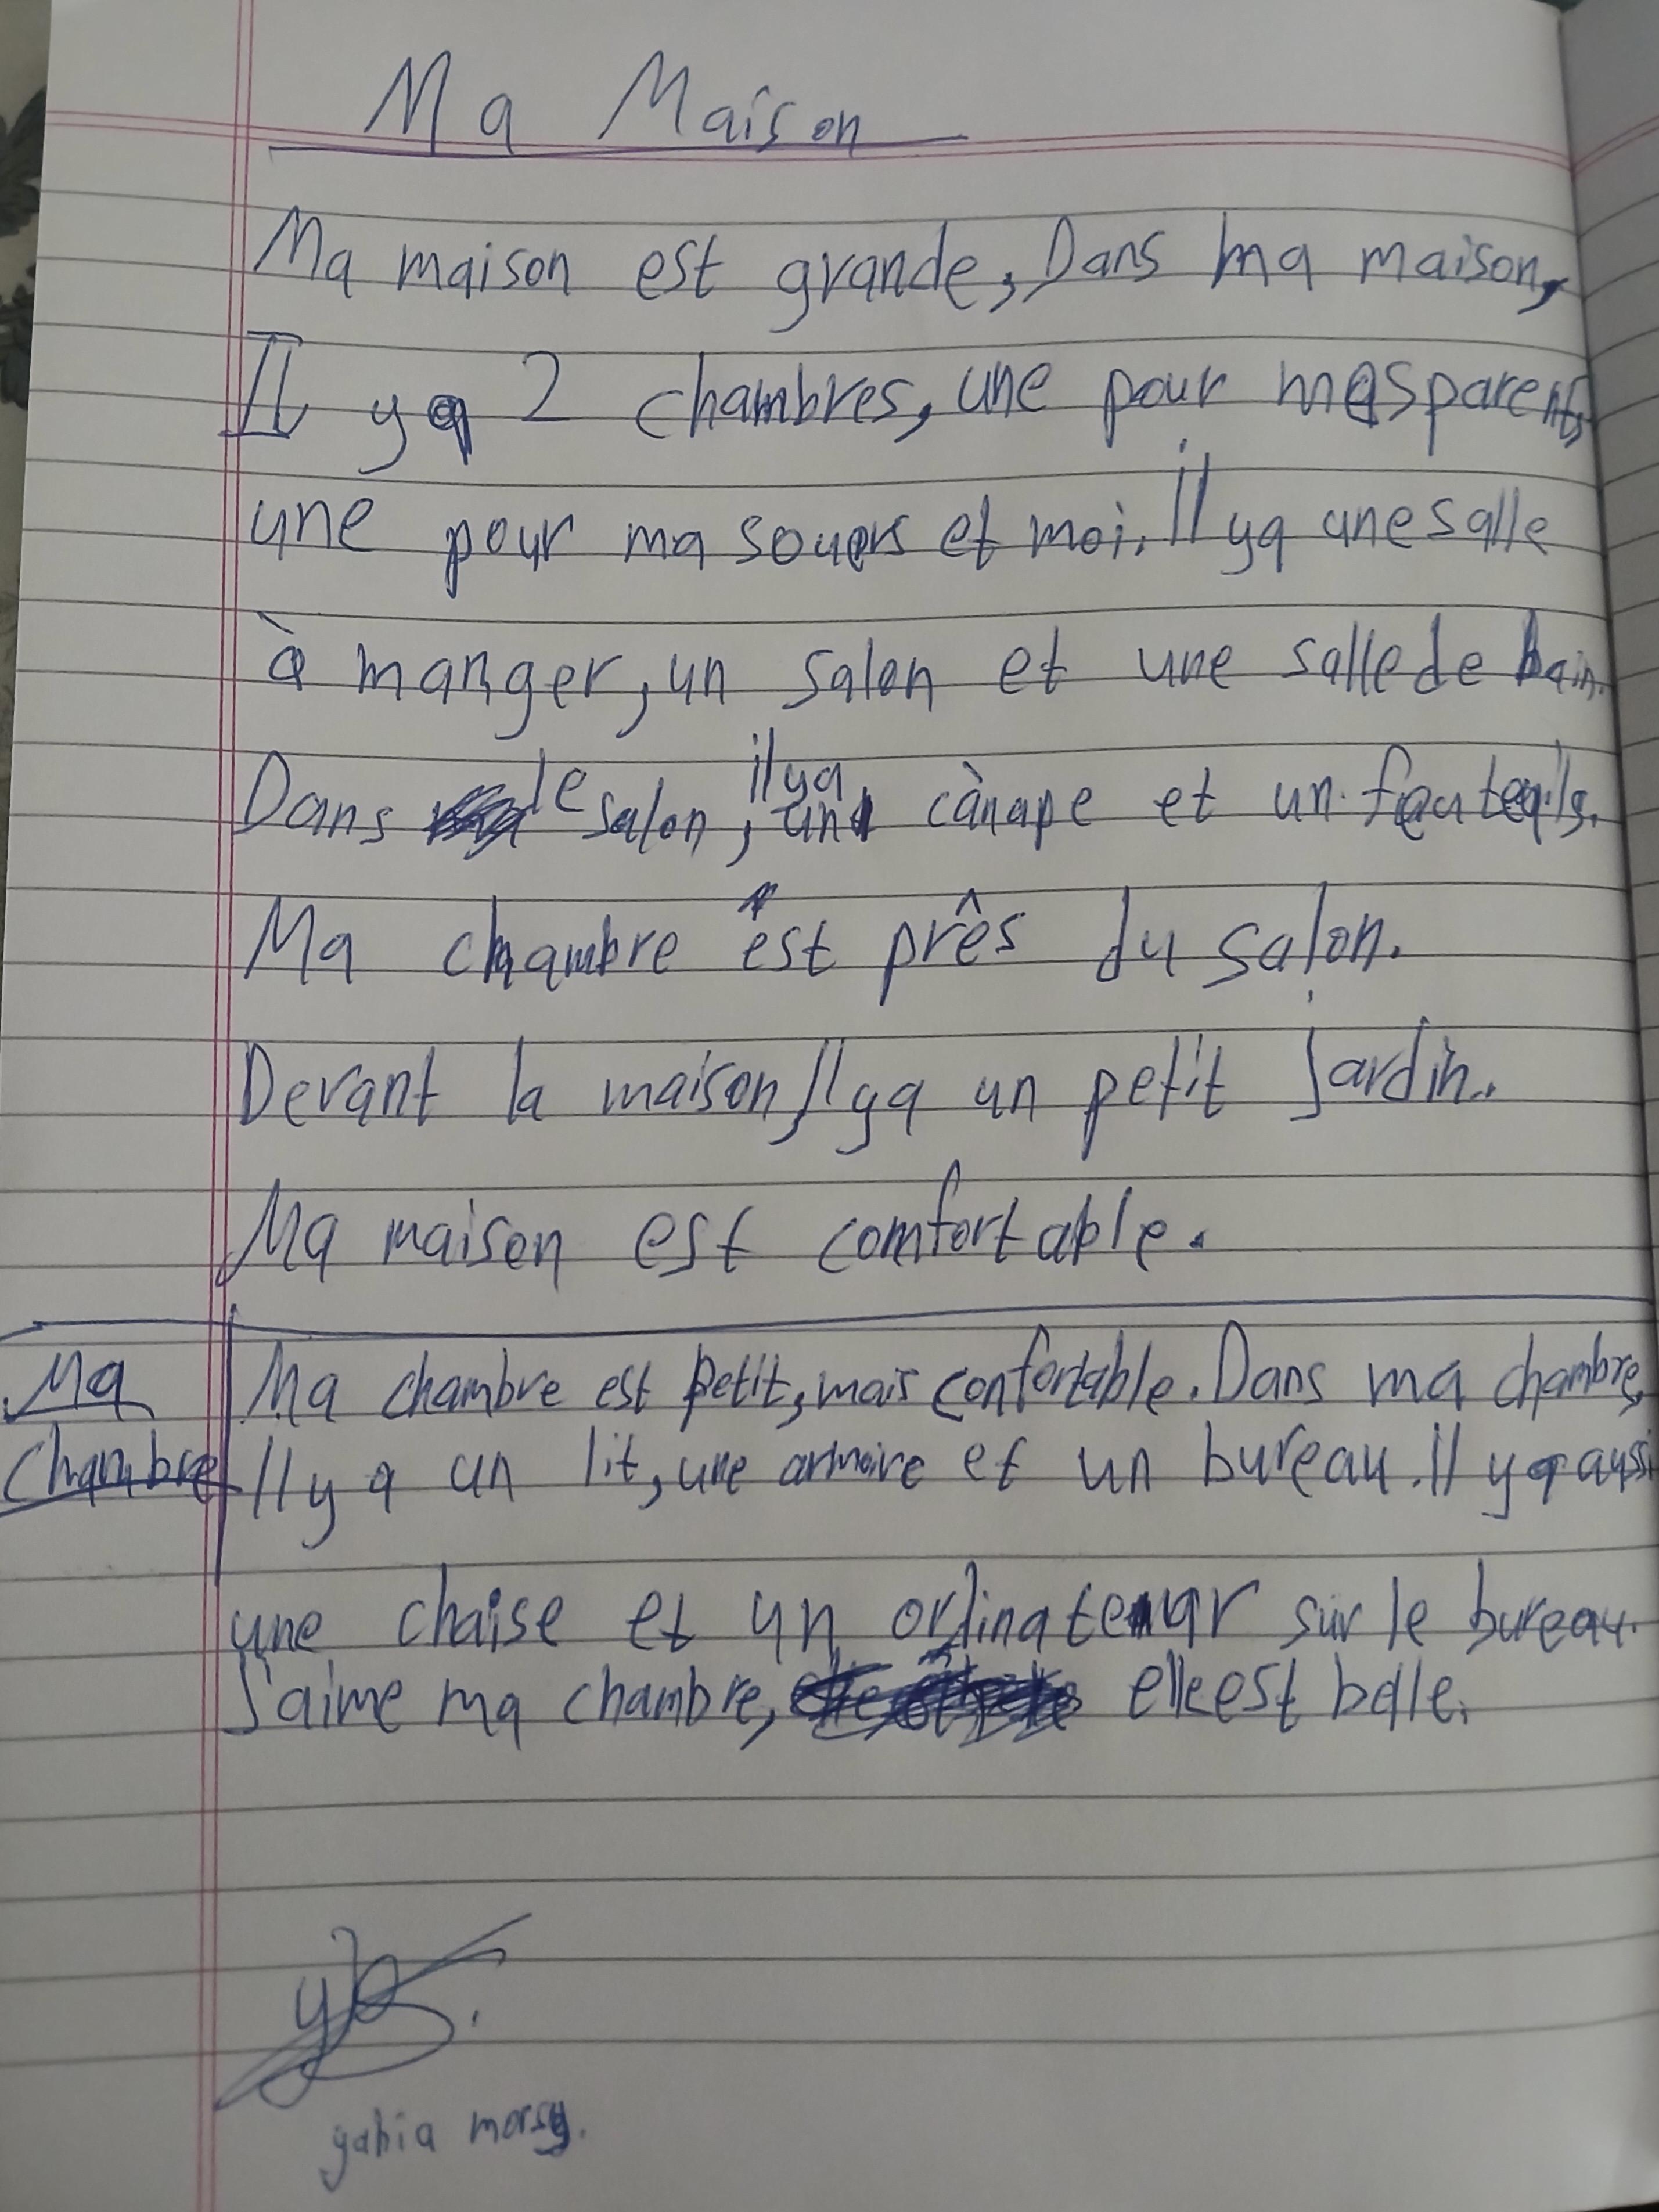 Ma Maison
Ma maison est grande, Dans ma maison,
Il y a 2 chambres, une pour mes parents,
une pour ma souers et moi. Il ya une salle
à manger, un salon et une salle de bain.
Dans le salon, il ya un cànape et un fauteuils.
Ma chambre est prês du salon.
Devant la maison, Il ya un petit jardin.
Ma maison est comfortable.
Ma chambre
Ma chambre est petit, mais confortable. Dans ma chambre,
Il y a un lit, une armoire et un bureau. il y a aussi
une chaise et un ordinateuar sur le bureau.
J'aime ma chambre, elle est belle.
yahia morsy.